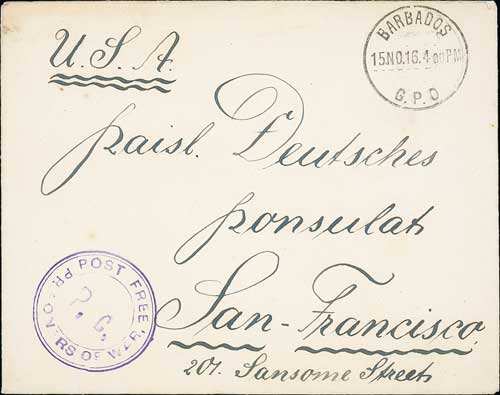 U.S.A.
BARBADOS
15 NO. 16. 4 00 PM
G.P.O
Kaisl. Deutsches
Konsulat
San-Francisco.
201. Sansome Street
POST FREE, PRISONERS OF WAR,
P. C,